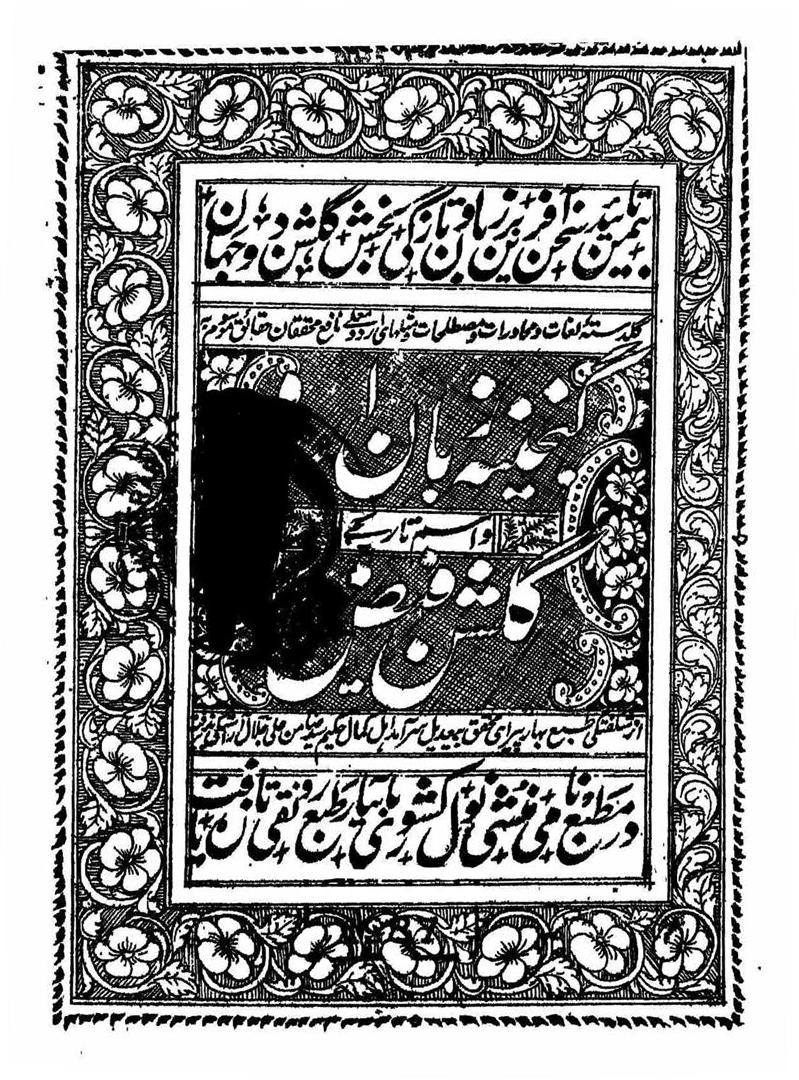 بتمین تائید سخن آفرین بزبان و تازگی بخش گلشن دو جهان
گلدستۂ لغات و محاورات و مصطلحات و مثلہای اردوی معلے نافع محققان حقائق موسومہ بہ
گنجینۂ زبان ا
و اسم تاریخے
گلشن فیض
از شگفتگی طبع بہار پیرای محقق بیعدیل سرآمد اہل کمال حکیم سید ضامن علی جلال
در مطبع نامی منشی نولکشور بآبیاری طبع رونق تازہ یافت